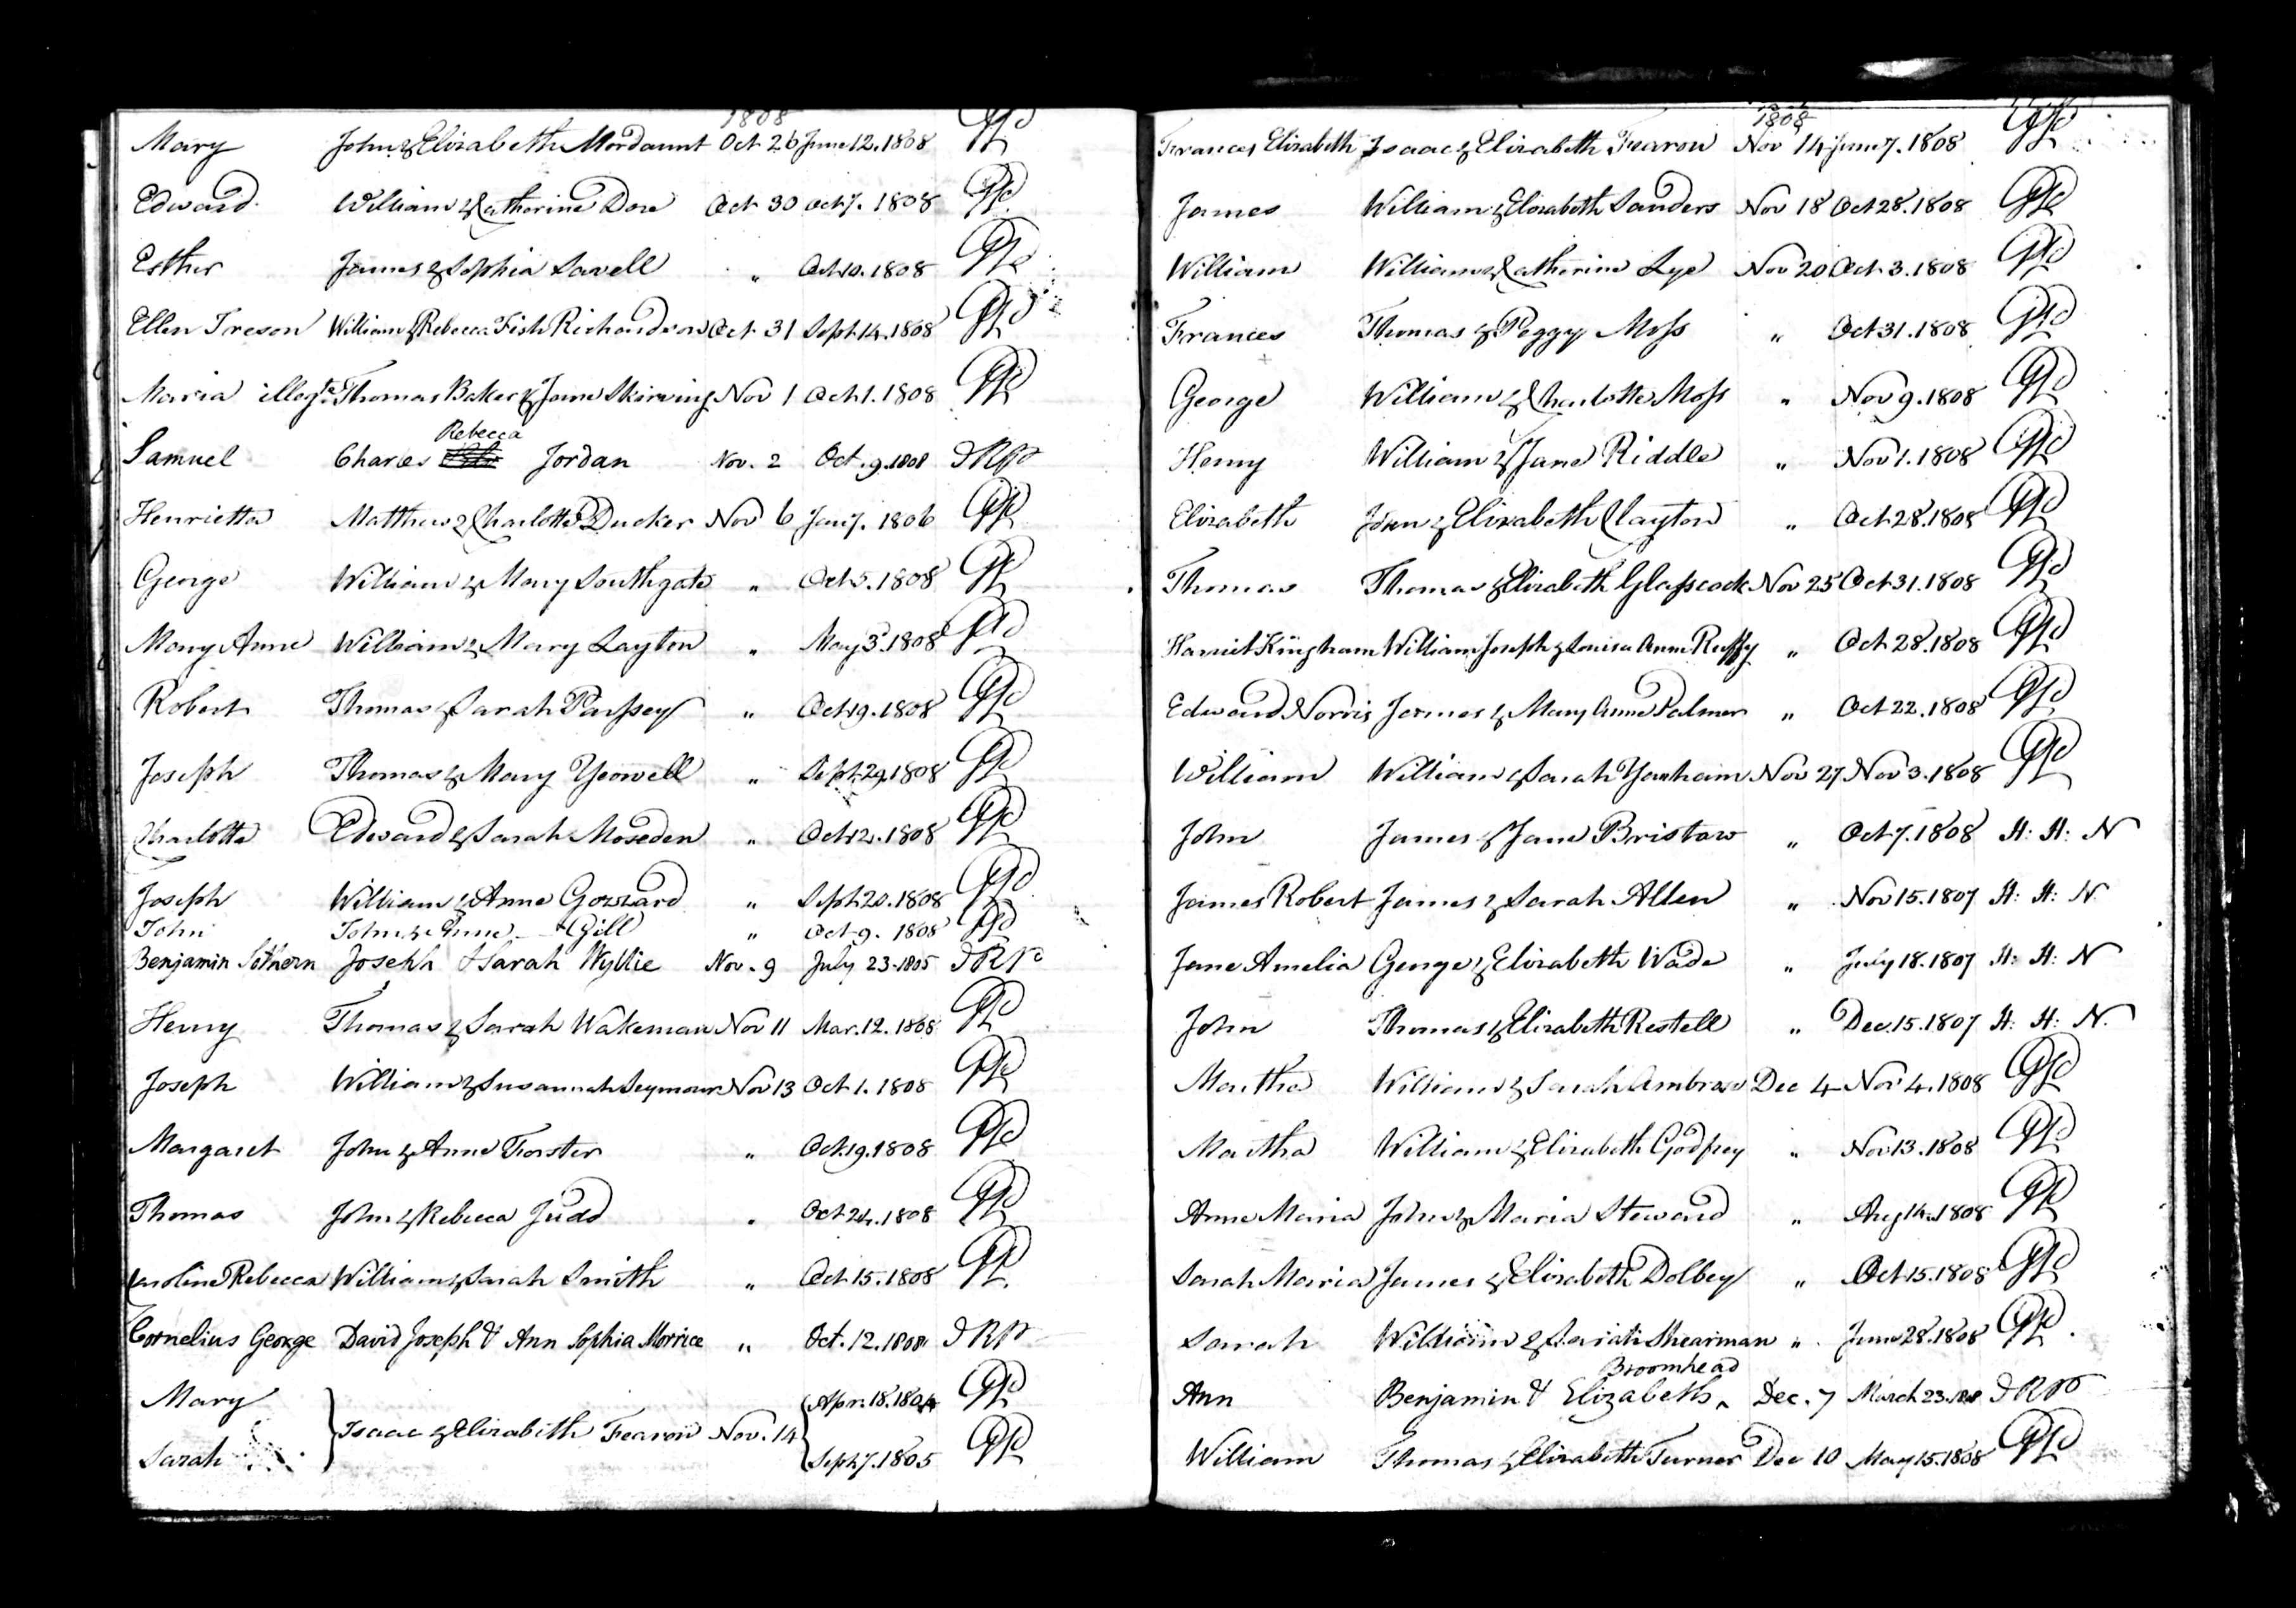 1808
Mary John & Elizabeth Mordaunt Oct 26 June 12. 1808
Edward William & Catherine Dore Oct 30 Oct 7. 1808
Esther James & Sophia Savell " Oct 10. 1808
Ellen Treson William & Rebecca Fish Richardson Oct 31 Sept 14. 1808
Maria illegte. Thomas Baker & Jane Skirving Nov 1 Oct 1. 1808
Rebecca
Samuel Charles Jordan Nov. 2 Oct. 9. 1808
Henrietta Matthew & Charlotte Ducker Nov 6 Jan 7. 1806
George William & Mary Southgate " Oct 5. 1808
Mary Anne William & Mary Layton " May 3. 1808
Robert Thomas & Sarah Passey " Oct 19. 1808
Joseph Thomas & Mary Yeowell " Sept 29. 1808
Charlotte Edward & Sarah Moseden " Oct 12. 1808
Joseph William & Anne Gozzard " Sept 20. 1808
John John & Anne Gill " Oct 9. 1808
Benjamin Sothern Joseph & Sarah Wyllie Nov. 9 July 23. 1805
Henry Thomas & Sarah Wakeman Nov 11 Mar. 12. 1808
Joseph William & Susannah Seymour Nov 13 Oct 1. 1808
Margaret John & Anne Forster " Oct 19. 1808
Thomas John & Rebecca Judd " Oct 24. 1808
Caroline Rebecca William & Sarah Smith " Oct 15. 1808
Cornelius George David Joseph & Ann Sophia Morrice " Oct. 12. 1808
Mary Apr. 18. 1804
Isaac & Elizabeth Fearon Nov. 14
Sarah Sept 7. 1805
1808
Frances Elizabeth Isaac & Elizabeth Fearon Nov 14 June 7. 1808
James William & Elizabeth Sanders Nov 18 Oct 28. 1808
William William & Catherine Lye Nov 20 Oct 3. 1808
Frances Thomas & Peggy Moss " Oct 31. 1808
George William & Charlotte Moss " Nov 9. 1808
Henry William & Jane Riddle " Nov 1. 1808
Elizabeth John & Elizabeth Clayton " Oct 28. 1808
Thomas Thomas & Elizabeth Glasscock Nov 25 Oct 31. 1808
Harriet Kingham William Joseph & Louisa Anne Ruffy " Oct 28. 1808
Edward Norris James & Mary Anne Palmer " Oct 22. 1808
William William & Sarah Yanham Nov 27 Nov 3. 1808
John James & Jane Bristow " Oct 7. 1808 H: H: N
James Robert James & Sarah Allen " Nov 15. 1807 H: H: N
Jane Amelia George & Elizabeth Wade " July 18. 1807 H: H: N
John Thomas & Elizabeth Restell " Dec. 15. 1807 H: H: N.
Martha William & Sarah Ambrose Dec 4 Nov 4. 1808
Martha William & Elizabeth Godfrey " Nov 13. 1808
Anne Maria John & Maria Steward " Aug 14. 1808
Sarah Maria James & Elizabeth Dolbey " Oct 15. 1808
Sarah William & Sarah Shearman " June 28. 1808
Broomhead
Ann Benjamin & Elizabeth ‸ Dec. 7 March 23. 1808
William Thomas & Elizabeth Turner Dec 10 May 15. 1808